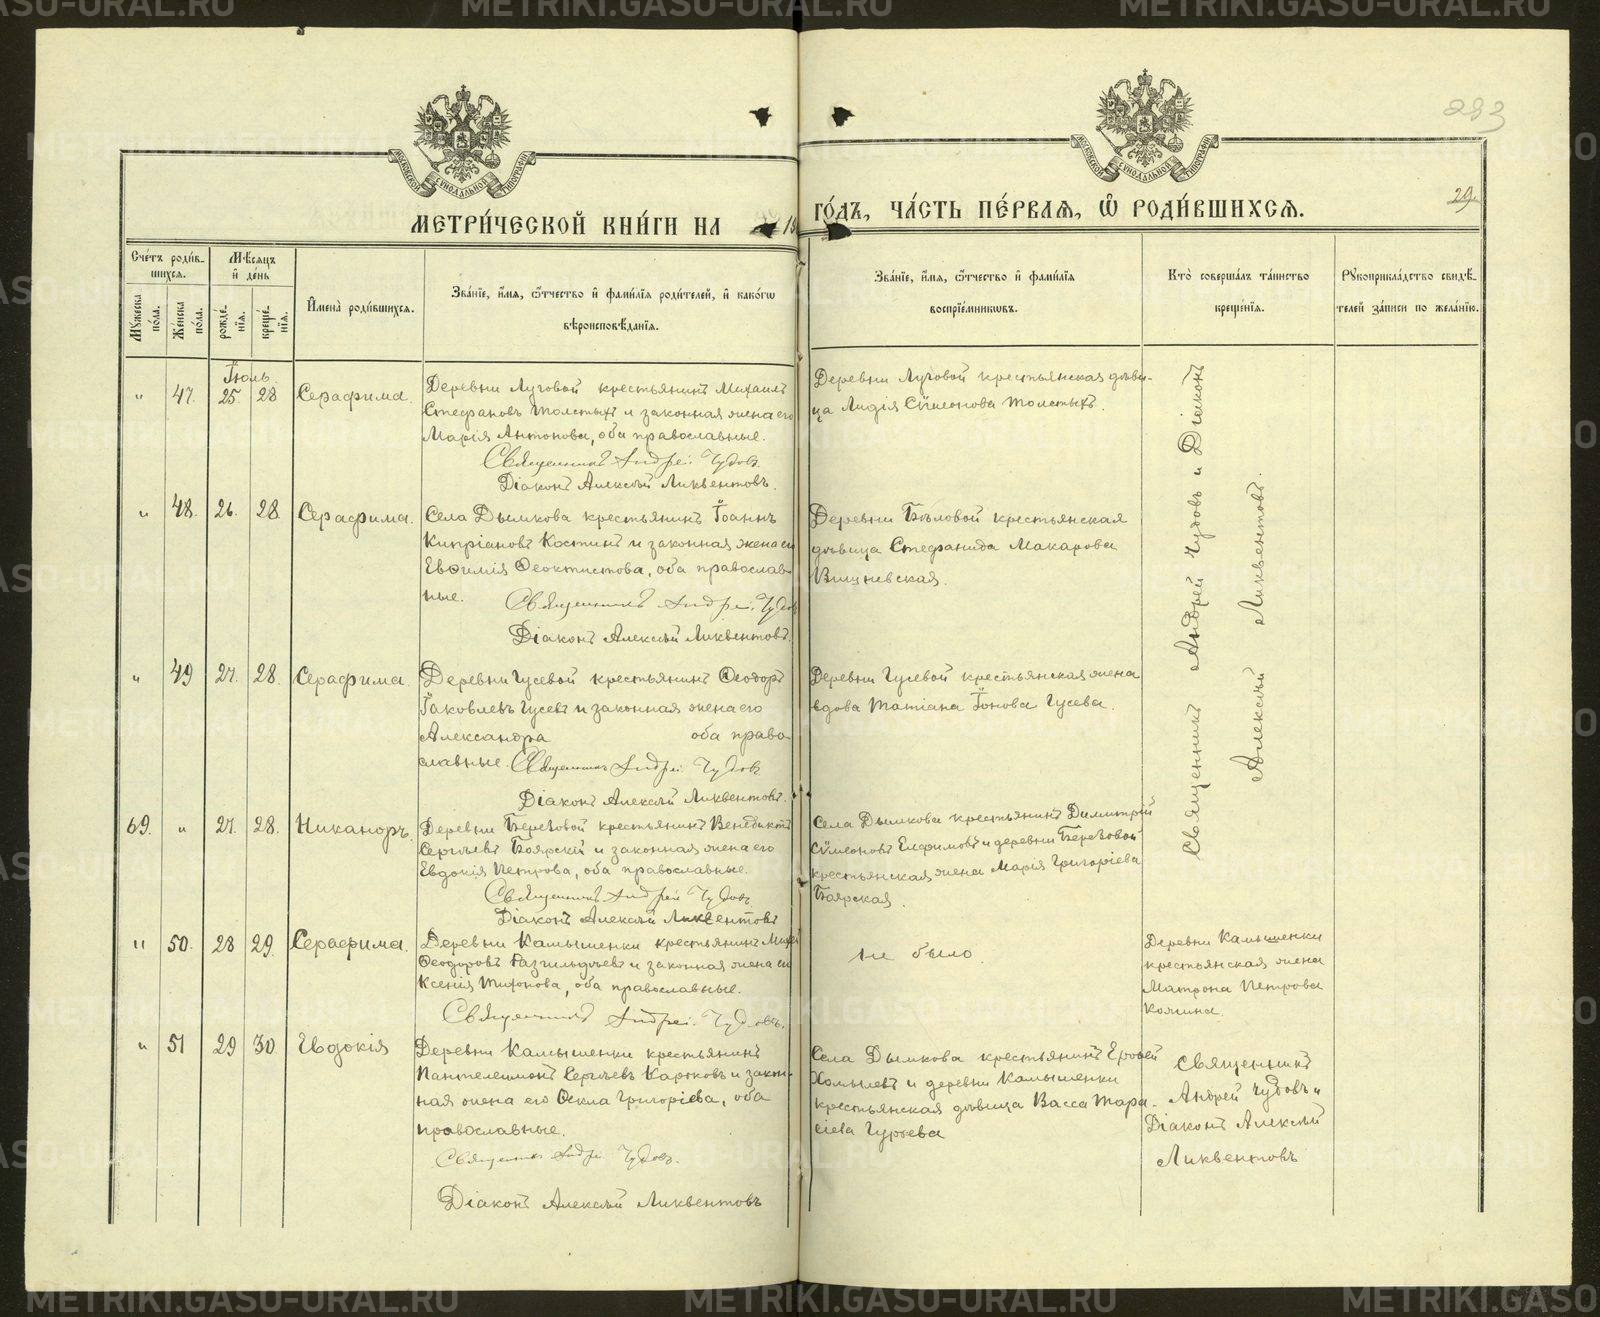 METRIKI.GASO-URAL.RU
283
МОСКОВСКОЙ СѴНОДАЛЬНОЙ ТИПОГРАФІИ
МОСКОВСКОЙ СѴНОДАЛЬНОЙ ТИПОГРАФІИ
29.
МЕТРИ́ЧЕСКОЙ КНИ́ГИ НА
ГО́ДЪ, ЧА́СТЬ ПЕ́РВАѦ, Ѽ РОДИ́ВШИХСѦ.
Сче́тъ роди́в-
шихсѧ.
Мꙋ́жеска по́ла.
Же́нска по́ла.
Мѣ́сѧцъ и҆ де́нь
рожде́-
нїѧ.
креще́-
нїѧ.
И҆мена̀ роди́вшихсѧ.
Зва́нїе, и҆́мѧ, ѻ҆́тчество и҆ фами́лїѧ роди́телей, и҆ како́гѡ
вѣроисповѣ́данїѧ.
Зва́нїе, и҆́мѧ, ѻ҆́тчество и҆ фами́лїѧ
воспрїе́мникѡвъ.
Кто̀ соверша́лъ та́инство
креще́нїѧ.
Рꙋкоприкла́дство свидѣ́-
телей за́писи по жела́нїю.
Іюль
" 47. 25. 28 Серафима.
Деревни Луговой крестьянинъ Михаилъ
Стефановъ Толстыхъ и законная жена его
Марія Антонова, оба православные.
Священникъ Андрей Чудовъ.
Діаконъ Алексѣй Ликвентовъ.
Деревни Луговой крестьянская дѣви-
ца Лидія Сѵмеонова Толстыхъ.
" 48. 26. 28 Серафима.
Села Дымкова крестьянинъ Іоаннъ
Кипріановъ Костинъ и законная жена его
Евѳимія Ѳеоктистова, оба православ-
ные. Священникъ Андрей Чудовъ
Діаконъ Алексѣй Ликвентовъ.
Деревни Бѣловой крестьянская
дѣвица Стефанида Макарова
Вишневская.
" 49 27. 28. Серафима.
Деревни Гусевой крестьянинъ Ѳеодоръ
Іаковлевъ Гусевъ и законная жена его
Александра оба право-
славные. Священникъ Андрей Чудовъ
Діаконъ Алексѣй Ликвентовъ.
Деревни Гусевой крестьянская жена
вдова Татіана Іонова Гусева.
69. " 27. 28. Никаноръ.
Деревни Березовой крестьянинъ Венедиктъ
Сергѣевъ Боярскій и законная жена его
Евдокія Петрова, оба православные.
Священникъ Андрей Чудовъ.
Діаконъ Алексѣй Ликвентовъ
Села Дымкова крестьянинъ Димитрій
Сѵмеоновъ Елфимовъ и деревни Березовой
крестьянская жена Марія Григоріева
Боярская.
Священникъ Андрей Чудовъ и Діаконъ
Алексѣй Ликвентовъ.
" 50. 28 29. Серафима.
Деревни Камышенки крестьянинъ
Ѳеодоровъ и законная жена его
Ксенія Тихонова, оба православные.
Священникъ Андрей Чудовъ.
не было.
Деревни Камышенки
крестьянская жена
Матрона Петрова
" 51 29 30 Евдокія
Деревни Камышенки крестьянинъ
Пантелеимонъ Сергѣевъ и закон-
ная жена его Ѳекла Григоріева, оба
православные.
Священникъ Андрей Чудовъ.
Діаконъ Алексѣй Ликвентовъ
Села Дымкова крестьянинъ Ерофей
и деревни Камышенки
крестьянская дѣвица Васса Тара-
сіева Гурьева
Священникъ
Андрей Чудовъ и
Діаконъ Алексѣй
Ликвентовъ